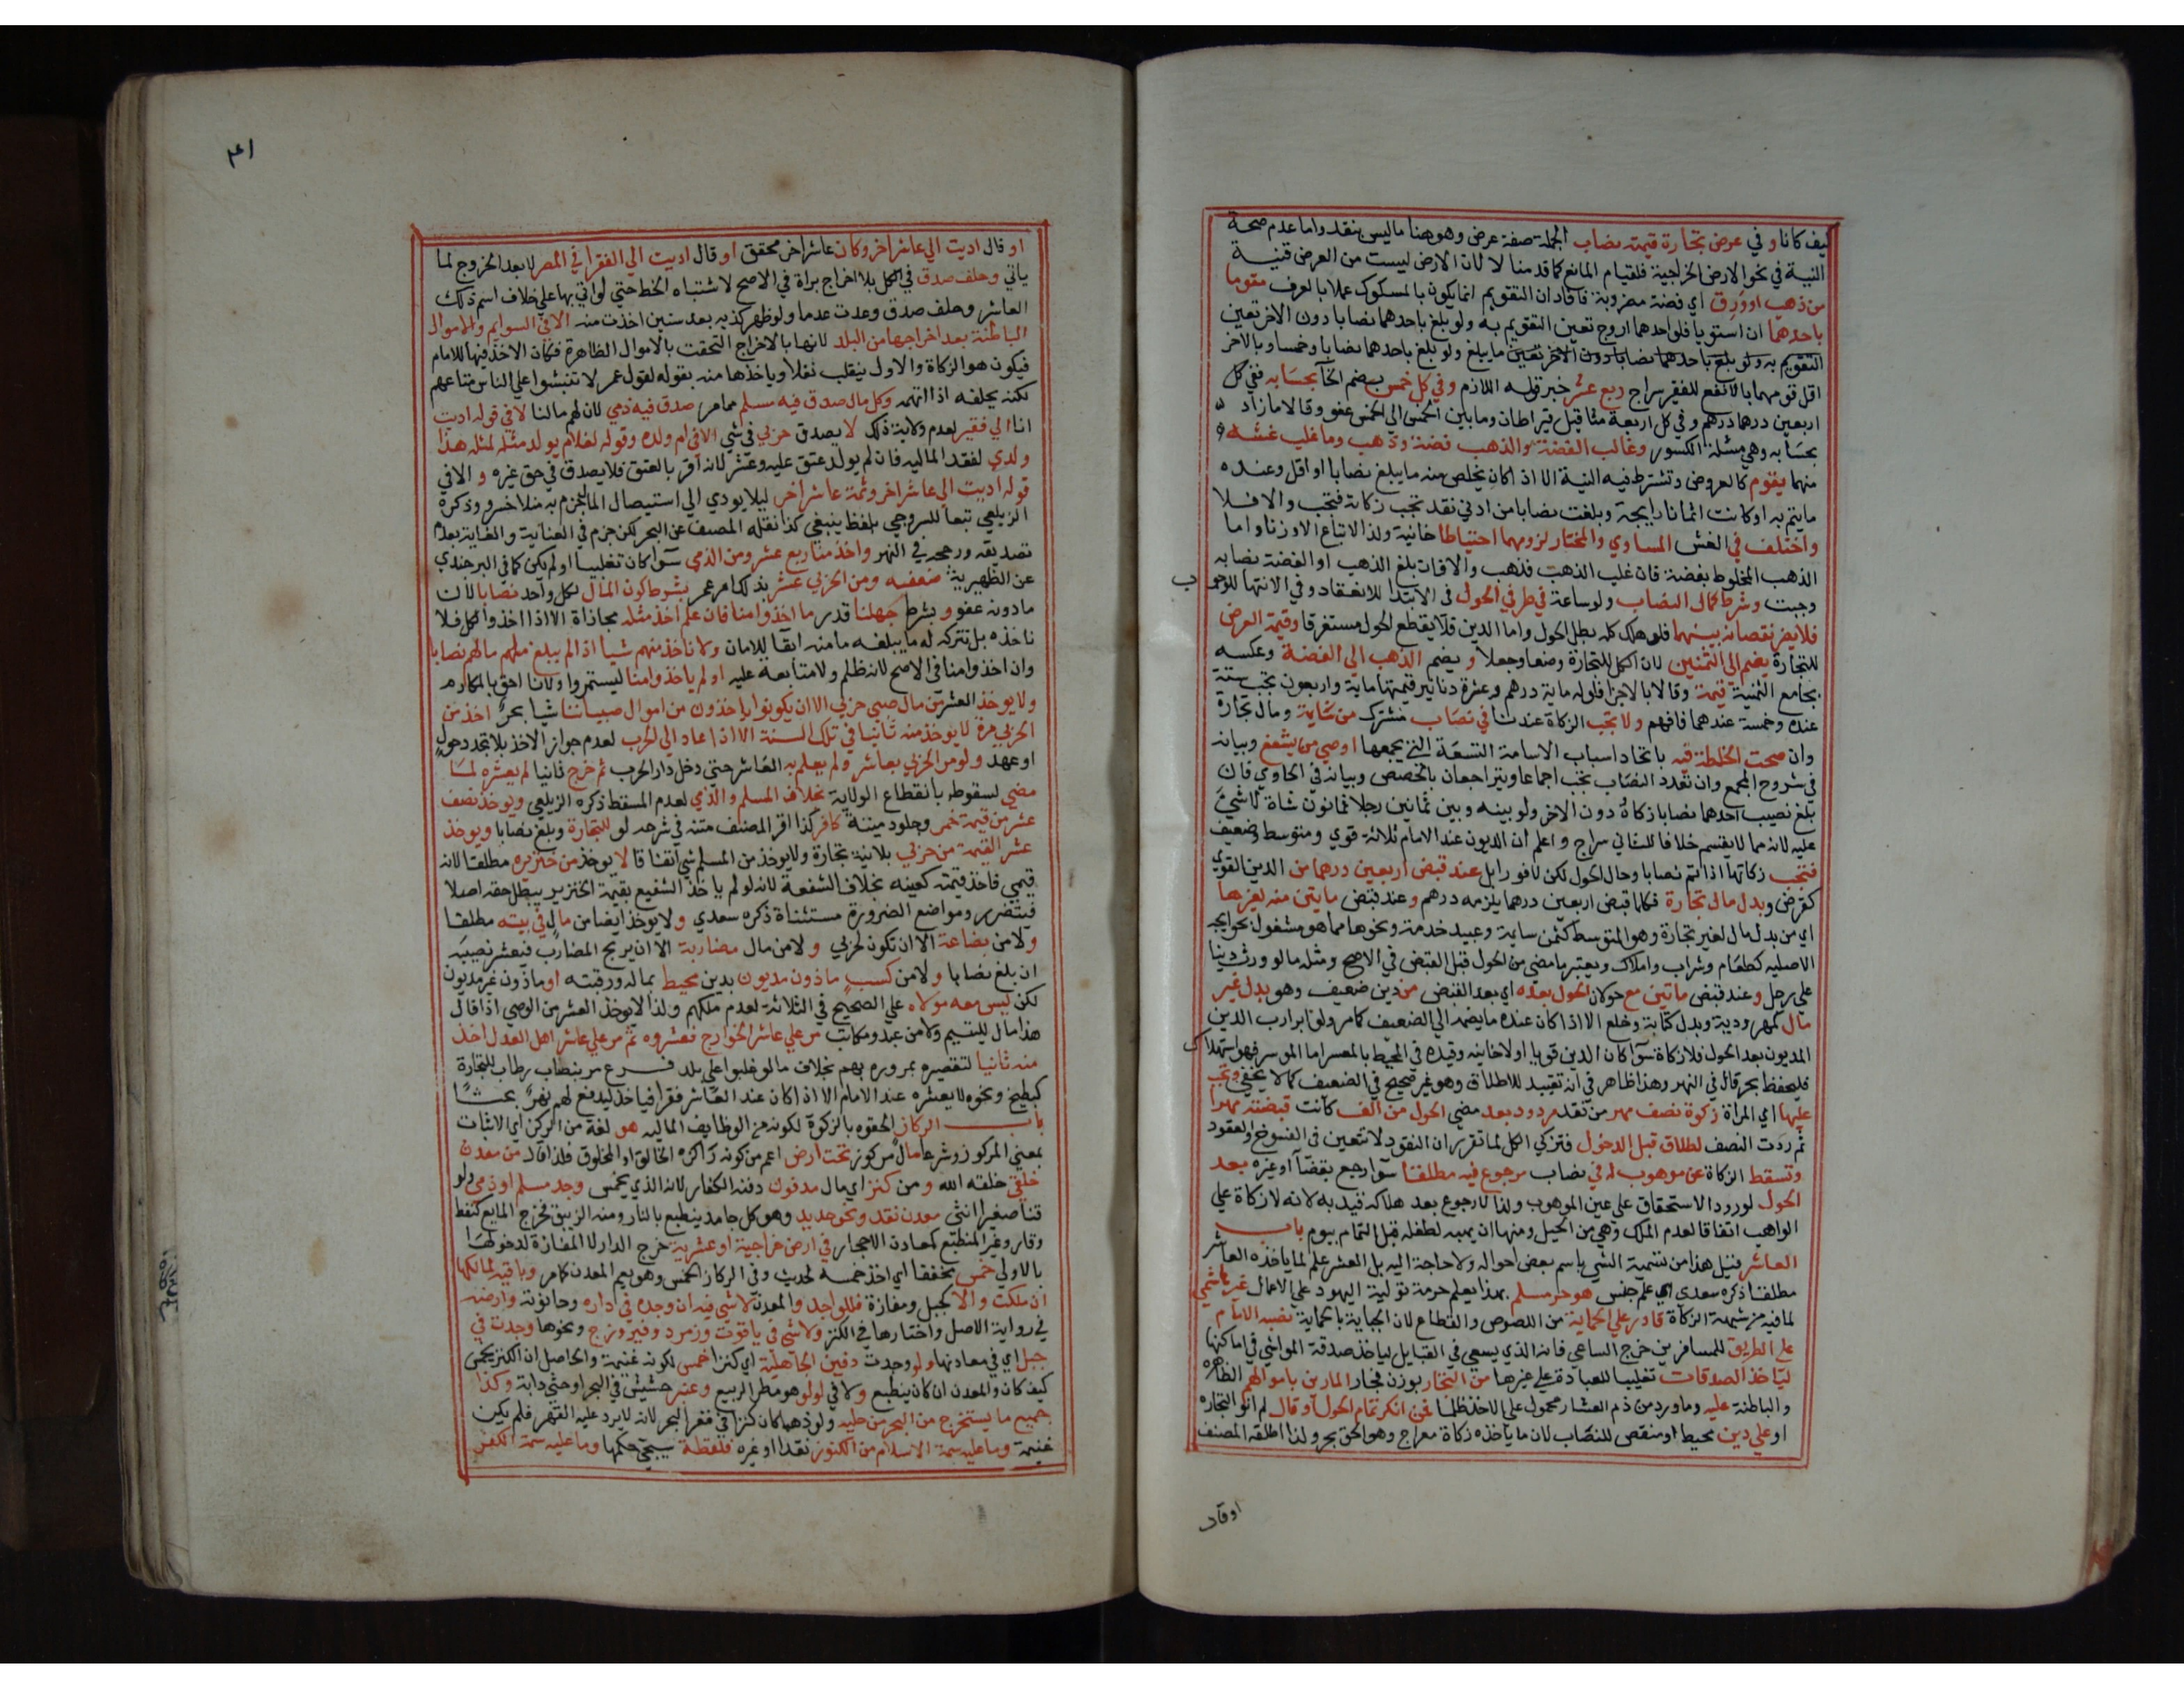 كيف كانا و في عرض تجارة قيمته نصاب الجملة صفة عرض وهو هنا ما ليس بنقد واما عدم صحة
النية في نحو الارض الخراجية فلقيام المانع كما قدمنا لا لان الارض ليست من العرض قنية
من ذهب او ورق اي فضة مضروبة فافاد ان التقويم انما يكون بالمسكوك عملا بالعرف مقوما
باحدهما ان استويا فلو احدهما اروج تعين التقويم به ولو بلغ باحدهما نصابا دون الاخر تعين
التقويم به ولو بلغ باحدهما نصابا دون الاخر تعين ما يبلغ ولو بلغ باحدهما نصابا وخمسا وبالاخر
اقل قومه بالانفع للفقير سراج ربع عشر خبر قوله اللازم وفي كل خمس بضم الخا بحسابه ففي كل
اربعين درهما درهم وفي كل اربعة مثاقيل قيراطان وما بين الخمس الي الخمس عفو وقالا ما زاد
بحسابه وهي مسئلة الكسور وغالب الفضة والذهب فضة وذهب وما غلب غشه
منهما يقوم كالعروض وتشترط فيه النية الا اذا كان يخلص منه ما يبلغ نصابا او اقل وعنده
ما يتم به او كانت اثمانا رايجة وبلغت نصابا من ادني نقد تجب زكاته فتجب والا فلا
واختلف في الغش المساوي والمختار لزومها احتياطا خانية ولذا لا تباع الا وزنا واما
الذهب المخلوط بفضة فان غلب الذهب فذهب والا فان بلغ الذهب او الفضة نصابه
وجبت وشرط كمال النصاب ولو ساعة في طرفي الحول في الابتدا للانعقاد وفي الانتها للوجوب
فلا يضر نقصانه بينهما فلو هلك كله بطل الحول واما الدين فلا يقطع الحول ولو مستغرقا وقيمة العرض
للتجارة يضم الي الثمنين لان الكل للتجارة وضعا وجعلا و يضم الذهب الي الفضة وعكسه
بجامع الثمنية قيمة وقالا بالاجزا فلو له ماية درهم وعشرة دنانير قيمتها ماية واربعون تجب ستة
عنده وخمسة عندهما فافهم ولا تجب الزكاة عندنا في نصاب مشترك من سايمة ومال تجارة
وان صحت الخلطة فيه باتحاد اسباب الاسامة التسعة التي يجمعها اوصي من يشفع وبيانه
في شروح المجمع وان تعدد النصاب تجب اجماعا ويتراجعان بالحصص وبيانه في الحاوي فان
بلغ نصيب احدهما نصابا زكاه دون الاخر ولو بينه وبين ثمانين رجلا ثمانون شاة لا شيئ
عليه لانه مما لا يقسم خلافا للثاني سراج و اعلم ان الديون عند الامام ثلاثة قوي ومتوسط وضعيف
فتجب زكاتها اذا تم نصابا وحال الحول لكن لا فورا بل عند قبض اربعين درهما من الدين القوي
كقرض وبدل مال تجارة فكلما قبض اربعين درهما يلزمه درهم و عند قبض مايتين منه لغيرها
اي من بدل مال لغير تجارة وهو المتوسط كثمن سايمة وعبيد خدمة ونحوهما مما هو مشغول بحوايجه
الاصلية كطعام وشراب واملاك ويعتبر ما مضي من الحول قبل القبض في الاصح ومثله ما لو ورث دينا
علي رجل و عند قبض مايتين مع حولان الحول بعده اي بعد القبض من دين ضعيف وهو بدل غير
مال كمهر ودية وبدل كتابة وخلع الا اذا كان عنده ما يضمه الي الضعيف كما مر ولو ابرا رب الدين
المديون بعد الحول فلا زكاة سوآ كان الدين قويا او لا خانية وقيده في المحيط بالمعسر اما الموسر فهو استهلاك
فليحفظ بحر قال في النهر وهذا ظاهر في انه تقييد للاطلاق وهو غير صحيح في الضعيف كما لا يخفي وتجب
عليها اي المراة زكوة نصف مهر من نقد مردود بعد مضي الحول من الف كانت قبضته مهرا
ثم ردت النصف لطلاق قبل الدخول فتزكي الكل لما تقرر ان النقود لا تتعين في الفسوخ والعقود
وتسقط الزكاة عن موهوب له في نصاب مرجوع فيه مطلقا سوآ رجع بقضآ او غيره بعد
الحول لورود الاستحقاق علي عين الموهوب ولذا لا رجوع بعد هلاكه قيد به لانه لا زكاة علي
الواهب اتفاقا لعدم الملك وهي من الحيل ومنها ان يهبه لطفله قبل التمام بيوم باب
العاشر قيل هذا من تسمية الشي باسم بعض احواله ولا حاجة اليه بل العشر علم لما ياخذه العاشر
مطلقا ذكره سعدي اي علم جنس هو حر مسلم بهذا يعلم حرمة تولية اليهود علي الاعمال غير هاشمي
لما فيه من شبهة الزكاة قادر علي الحماية من اللصوص والقطاع لان الجباية بالحماية نصبه الامام
علي الطريق للمسافرين خرج الساعي فانه الذي يسعي في القبايل لياخذ صدقة المواشي في اماكنها
لياخذ الصدقات تغليبا للعبادة علي غيرها من التجار بوزن فجار المارين باموالهم الظاهرة
والباطنة عليه وما ورد من ذم العشار محمول علي الاخذ ظلما فمن انكر تمام الحول او قال لم انو التجارة
او علي دين محيط او منقص للنصاب لان ما ياخذه زكاة معراج وهو الحق بحر ولذا اطلقه المصنف
او قال
٤١
او قال اديت الي عاشر اخر وكان عاشر اخر محقق او قال اديت الي الفقرا في المصر لا بعد الخروج لما
ياتي وحلف صدق في الكل بلا اخراج براة في الاصح لاشتباه الخط حتي لو اتي بها علي خلاف اسم ذلك
العاشر وحلف صدق وعدت عدما ولو ظهر كذبه بعد سنين اخذت منه الا في السوايم والاموال
الباطنة بعد اخراجها من البلد لانها بالاخراج التحقت بالاموال الظاهرة فكان الاخذ فيها للامام
فيكون هو الزكاة والاول ينقلب نفلا وياخذها منه بقوله لقول عمر لا تنبشوا علي الناس متاعهم
لكنه يحلفه اذا اتهمه وكل مال صدق فيه مسلم مما مر صدق فيه ذمي لان لهم ما لنا لا في قوله اديت
انا الي فقير لعدم ولاية ذلك لا يصدق حربي في شي الا في ام ولده وقوله لغلام يولد مثله لمثله هذا
ولدي لفقد المالية فان لم يولد عتق عليه وعشر لانه اقر بالعتق فلا يصدق في حق غيره و الا في
قوله اديت الي عاشر اخر وثمة عاشر اخر ليلا يودي الي استيصال المال جزم به منلا خسرو وذكره
الزيلعي تبعا للسروجي بلفظ ينبغي كذا نقله المصنف عن البحر لكن جزم في العناية والغاية بعدم
تصديقه ورجحه في النهر واخذ منا ربع عشر ومن الذمي سوآ كان تغلبيا او لم يكن كما في البرجندي
عن الظهيرية ضعفه ومن الحربي عشر بذلك امر عمر بشرط كون المال لكل واحد نصابا لان
ما دونه عفو و بشرط جهلنا قدر ما اخذوا منا فان علم اخذ مثله مجازاة الا اذا اخذوا الكل فلا
ناخذه بل نتركه له ما يبلغه مامنه ابقآ للامان ولا ناخذ منهم شيا اذا لم يبلغ مالهم نصابا
وان اخذوا منا في الاصح لانه ظلم ولا متابعة عليه او لم ياخذوا منا ليستمروا ولانا احق بالمكارم
ولا يوخذ العشر من مال صبي حربي الا ان يكونوا ياخذون من اموال صبياننا شيا بحر اخذ من
الحربي مرة لا يوخذ منه ثانيا في تلك السنة الا اذا عاد الي الحرب لعدم جواز الاخذ بلا تجدد حول
او عهد ولو مر الحربي بعاشر ولم يعلم به العاشر حتي دخل دار الحرب ثم خرج ثانيا لم يعشره لما
مضي لسقوطه بانقطاع الولاية بخلاف المسلم والذمي لعدم المسقط ذكره الزيلعي ويوخذ نصف
عشر من قيمة خمر وجلود ميتة كافر كذا اقر المصنف متنه في شرحه لو للتجارة وبلغ نصابا ويوخذ
عشر القيمة من حربي بلا نية تجارة ولا يوخذ من المسلم شي اتفاقا لا يوخذ من خنزيره مطلقا لانه
قيمي فاخذ قيمته كعينه بخلاف الشفعة لانه لو لم ياخذ الشفيع بقيمة الخنزير يبطل حقه اصلا
فيتضرر ومواضع الضرورة مستثناة ذكره سعدي ولا يوخذ ايضا من مال في بيته مطلقا
ولا من بضاعة الا ان تكون لحربي ولا من مال مضاربة الا ان يربح المضارب فيعشر نصيبه
ان بلغ نصابا ولا من كسب ماذون مديون بدين محيط بماله ورقبته او ماذون غير مديون
لكن ليس معه مولاه علي الصحيح في الثلاثة لعدم ملكهم ولذا لا يوخذ العشر من الوصي اذا قال
هذا مال لليتيم ولا من عبد ومكاتب مر علي عاشر الخوارج فعشروه ثم مر علي عاشر اهل العدل اخذ
منه ثانيا لتقصيره بمروره بهم بخلاف ما لو غلبوا علي بلد فرع مر بنصاب رطاب للتجارة
كبطيخ ونحوه لا يعشره عند الامام الا اذا كان عند العاشر فقرا فياخذ ليدفع لهم نهر بحثا
باب الركاز الحقوه بالزكوة لكونه من الوظايف المالية هو لغة من الركز اي الاثبات
بمعني المركوز وشرعا مال مركوز تحت ارض اعم من كونه راكزه الخالق او المخلوق فلذا قال من معدن
خلقي خلقه الله و من كنز اي مال مدفون دفنه الكفار لانه الذي يخمس وجد مسلم او ذمي ولو
قنا صغيرا انثي معدن نقد و نحو حديد وهو كل جامد ينطبع بالنار ومنه الزيبق فخرج المايع كنفط
وقار وغير المنطبع كمعادن الاحجار في ارض خراجية او عشرية خرج الدار لا المفازة لدخولها
بالاولي خمس مخففا اي اخذ خمسه لحديث وفي الركاز الخمس وهو يعم المعدن كما مر وباقيه لمالكها
ان ملكت والا كجبل ومفازة فللواجد والمعدن لا شي فيه ان وجده في داره وحانوته وارضه
في رواية الاصل واختارها في الكنز ولا شي في ياقوت وزمرد وفيروزج ونحوها وجدت في
جبل اي في معادنها ولو وجدت دفين الجاهلية اي كنزا خمس لكونه غنيمة والحاصل ان الكنز يخمس
كيف كان والمعدن ان كان ينطبع ولا في لولو هو مطر الربيع وعنبر حشيش في البحر او خثي دابة وكذا
جميع ما يستخرج من البحر من حلية ولو ذهبا كان كنزا في قعر البحر لانه لا يرد عليه القهر فلم يكن
غنيمة وما عليه سمة الاسلام من الكنوز نقدا او غيره فلقطة سيجي حكمها وما عليه سمة الكفر